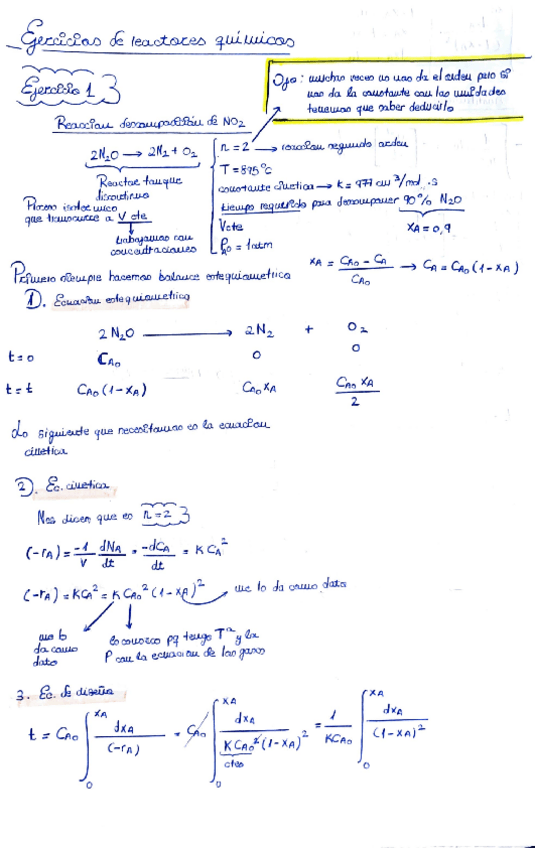 Ejercicios de reactores químicos
Ejercicio 1
Ojo: muchas veces no nos da el orden pero si
nos da la constante con las unidades
tenemos que saber deducirlo
Reaccion descomposición de NO2
2N2O → 2N2 + O2
Reactor tanque
discontinuo
Proceso isotermico
que transcurre a V cte
trabajamos con
concentraciones
n = 2 → reaccion segundo orden
T = 895°C
constante cinetica → K = 977 cm³/mol·s
tiempo requerido para descomponer 90% N2O
XA = 0,9
V cte
P0 = 1 atm
XA = (CA0 - CA) / CA0 → CA = CA0 (1 - XA)
Primero siempre hacemos balance estequiometrico
1). Ecuacion estequiometrica
2 N2O → 2 N2 + O2
t=0 CA0 0 0
t=t CA0 (1-XA) CA0 XA CA0 XA / 2
Lo siguiente que necesitamos es la ecuacion
cinetica
2). Ec. cinetica
Nos dicen que es n=2
(-rA) = -1/V dNA/dt = -dCA/dt = K CA²
(-rA) = KCA² = K CA0² (1-XA)² me lo da como dato
nos lo
da como
dato
lo conozco pq tengo Tª y la
P con la ecuacion de los gases
3. Ec. de diseño
t = CA0 ∫0^XA dXA / (-rA) = CA0 ∫0^XA dXA / KCA0² (1-XA)² = 1/KCA0 ∫0^XA dXA / (1-XA)²
ctes